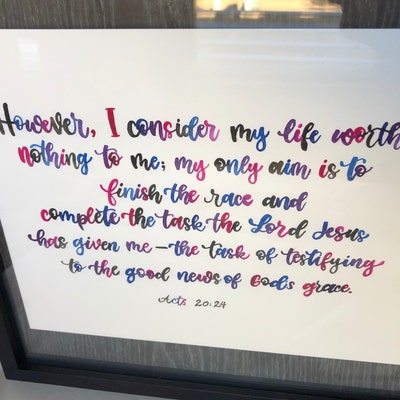 However, I consider my life worth
nothing to me; my only aim is to
finish the race and
complete the task the Lord Jesus
has given me—the task of testifying
to the good news of God's grace.
Acts 20:24